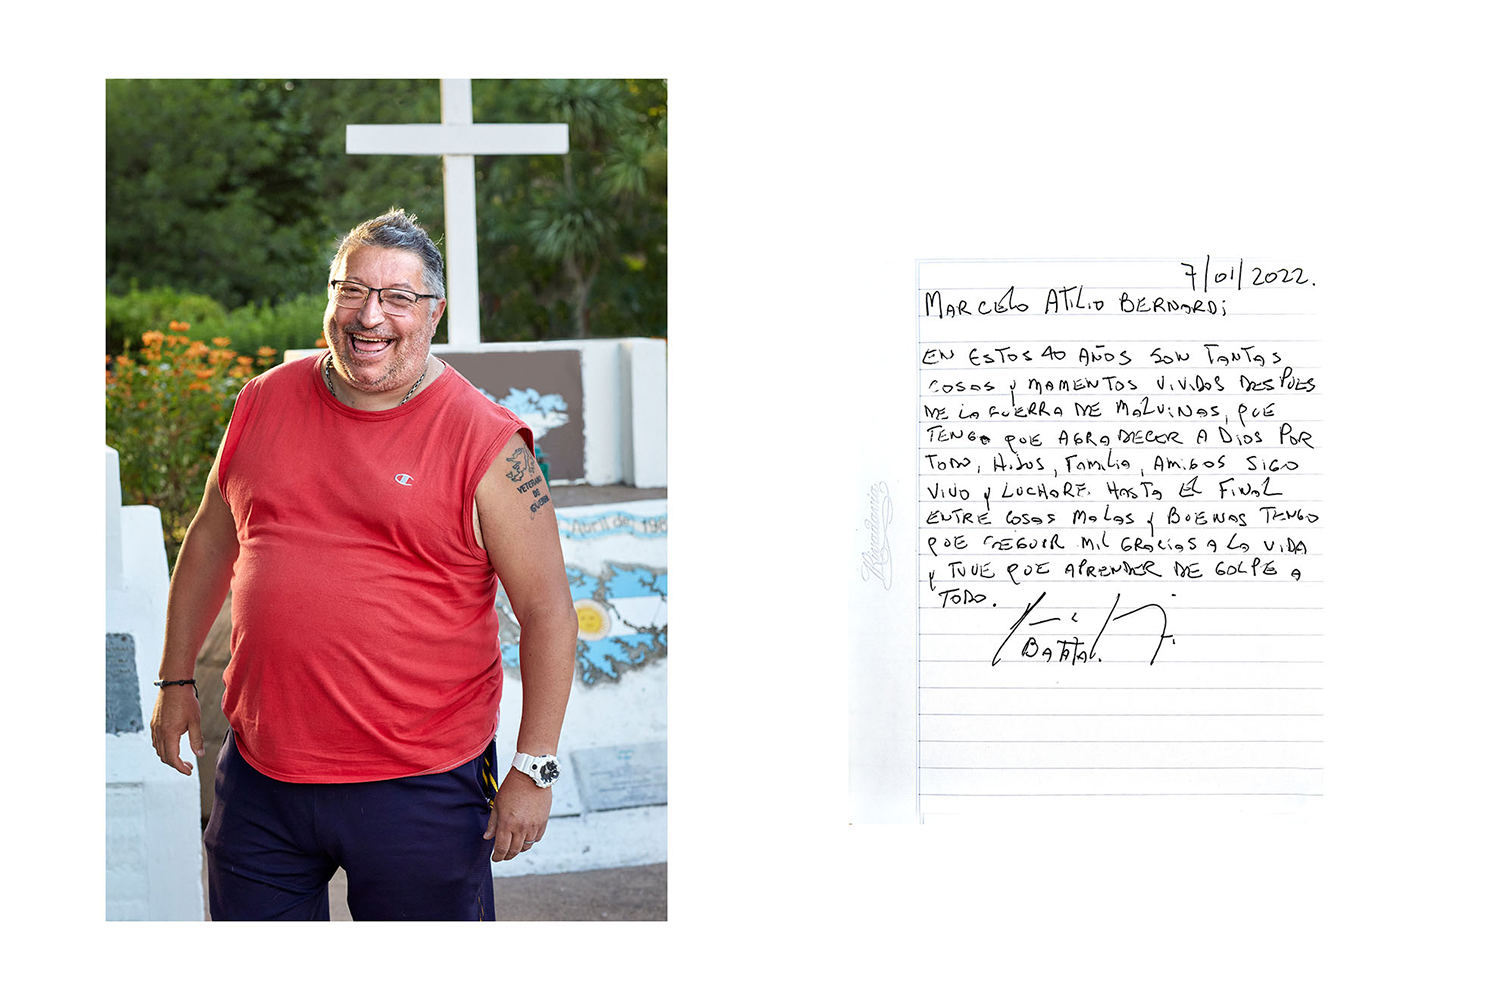 VETERANO
DE
GUERRA
Abril de 198
7/01/2022.
MARCELO ATILIO BERNARDi
EN ESTOS 40 AÑOS SON TANTAS
COSAS y MAMENTOS VIVIDOS DESPUES
DE LA GUERRA DE MALViNAS, QUE
TENGO QUE AGRADECER A DIOS POR
TODO, HiJOS, FAMiLiA, AMiGOS SIGO
VIVO y LUCHARE HASTA EL FINAL
ENTRE COSAS MALAS y BUENAS TENGO
QUE SEGUIR MIL GRACiAS A LA VIDA
y TUVE QUE APRENDER DE GOLPE A
TODO.
BATATA.
Rivadavia